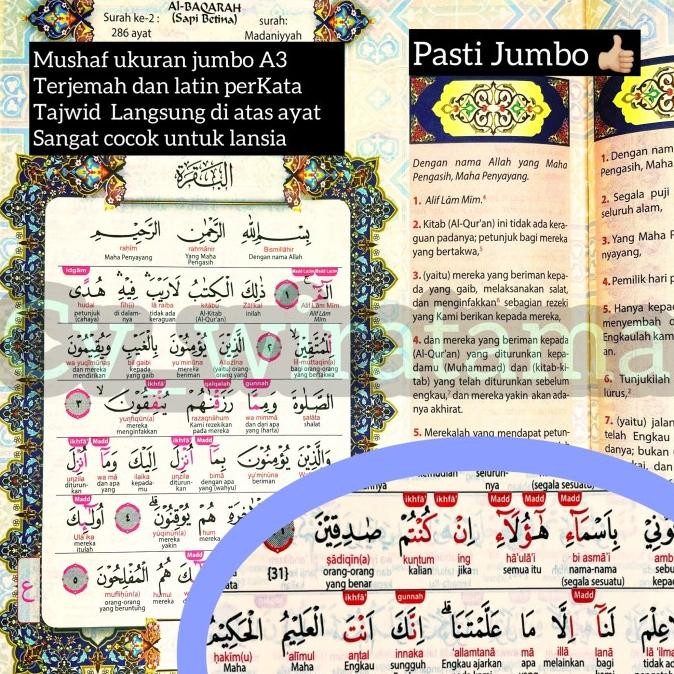 AL-BAQARAH
Surah ke-2 :
286 ayat
(Sapi Betina)
surah:
Madaniyyah
Mushaf ukuran jumbo A3
Terjemah dan latin perKata
Tajwid Langsung di atas ayat
Sangat cocok untuk lansia
Pasti Jumbo 👍
البقرة
بِسْمِ اللهِ الرَّحْمٰنِ الرَّحِيْمِ
Bismillāhir rahmānir rahīm
Dengan nama Allah Yang Maha Pengasih Maha Penyayang
idgām Madd Lazim Madd Lazim
الۤمّۤ ١ ذٰلِكَ الْكِتٰبُ لَارَيْبَ فِيْهِ هُدًى
Alif Lām Mīm Żālikal kitābu lā raiba fīh(i) hudal
Alif Lām Mīm inilah Al-Kitab (Al-Qur'an) tidak ada keraguan di dalam- nya petunjuk (cahaya)
لِّلْمُتَّقِيْنَ ٢ الَّذِيْنَ يُؤْمِنُوْنَ بِالْغَيْبِ وَيُقِيْمُوْنَ
lil-muttaqīn(a) Allażīna yu'minūna bil gaibi wa yuqīmūnaṣ
bagi orang-orang yang bertakwa (yaitu) orang-orang yang mereka beriman kepada yang gaib dan mereka mendirikan
ikhfā' qalqalah gunnah
الصَّلٰوةَ وَمِمَّا رَزَقْنٰهُمْ يُنْفِقُوْنَ ٣
ṣalāta wa mimmā razaqnāhum yunfiqūn(a)
shalat dan dari apa yang (harta) Kami rezekikan pada mereka mereka menginfakkan
ikhfā' Madd ikhfā' Madd
وَالَّذِيْنَ يُؤْمِنُوْنَ بِمَآ اُنْزِلَ اِلَيْكَ وَمَآ اُنْزِلَ
yu'minūna bimā unzila ilaika wa mā unzila
beriman dengan apa yang (wahyu) diturun- kan kepada- mu dan apa yang diturun- kan
Madd
هُمْ يُوْقِنُوْنَ ٤ اُولٰۤىِٕكَ
hum yūqinūn(a) Ulā'ika
mereka yakin mereka itulah
هُمُ الْمُفْلِحُوْنَ ٥
humul mufliḥūn(a)
mereka orang-orang yang beruntung
Dengan nama Allah Yang Maha
Pengasih, Maha Penyayang.
1. Alif Lām Mīm.⁶
2. Kitab (Al-Qur'an) ini tidak ada kera-
guan padanya; petunjuk bagi mereka
yang bertakwa,⁵
3. (yaitu) mereka yang beriman kepa-
da yang gaib, melaksanakan salat,
dan menginfakkan⁶ sebagian rezeki
yang Kami berikan kepada mereka,
4. dan mereka yang beriman kepada
(Al-Qur'an) yang diturunkan kepa-
damu (Muhammad) dan (kitab-ki-
tab) yang telah diturunkan sebelum
engkau,⁷ dan mereka yakin akan ada-
nya akhirat.
5. Merekalah yang mendapat petun-
1. Dengan nam
Pengasih, Maha
2. Segala puji
seluruh alam,
3. Yang Maha P
nyayang,
4. Pemilik hari p
5. Hanya kepac
menyembah d
Engkaulah kam
an.
6. Tunjukilah
lurus,²
7. (yaitu) jalan
telah Engkau
danya; bukan (
(segala sesuatu)
ikhfā' ikhfā' Madd Madd
بِاَسْمَآءِ هٰٓؤُلَآءِ اِنْ كُنْتُمْ صٰدِقِيْنَ
bi asmā'i hā'ulā'i ing kuntum ṣādiqīn(a)
nama-nama (segala sesuatu) semua itu jika kalian orang-orang yang benar {31}
ikhfā' gunnah Madd
لَنَآ اِلَّا مَا عَلَّمْتَنَا اِنَّكَ اَنْتَ الْعَلِيْمُ الْحَكِيْمُ
lanā illā mā 'allamtanā innaka antal 'alīmul ḥakīm(u)
bagi kami melainkan apa yang Engkau ajarkan kepada sungguh Engkau Maha Maha